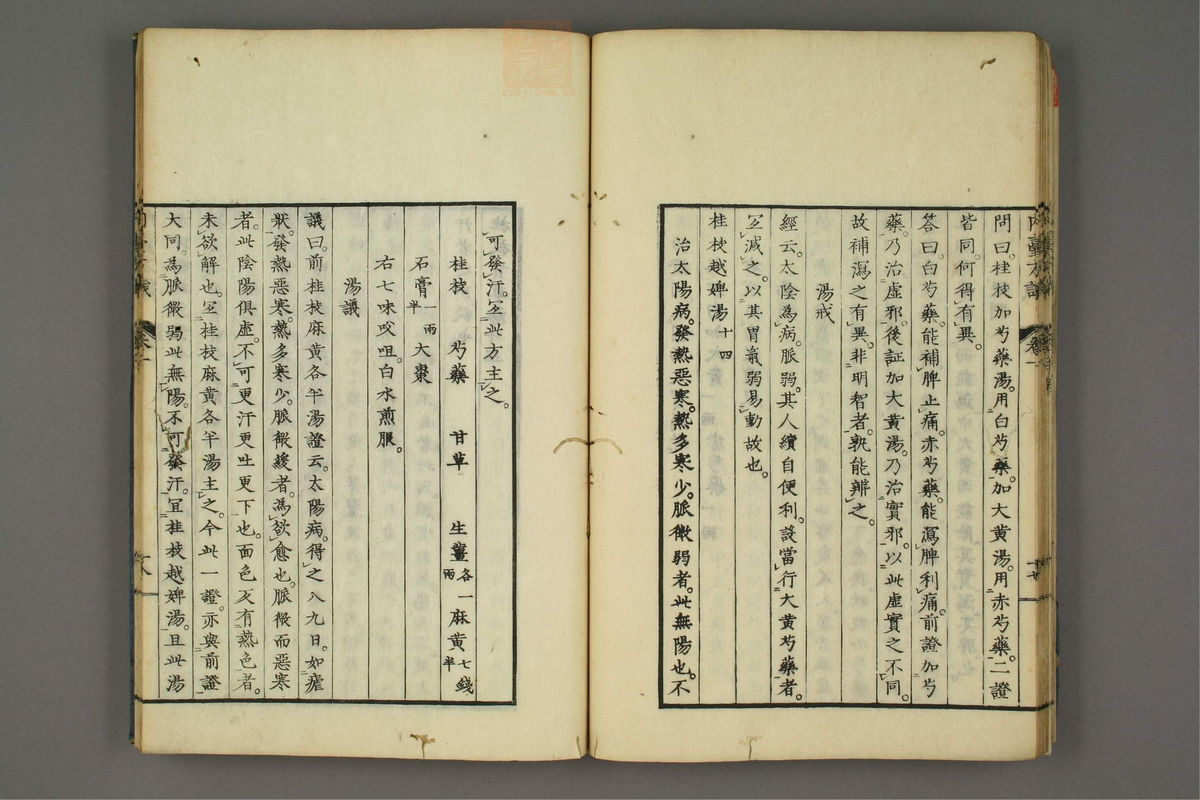 問曰。桂枝加芍藥湯。用白芍藥。加大黃湯。用赤芍藥。二證
皆同。何得有異。
答曰。白芍藥。能補脾止痛。赤芍藥。能瀉脾利痛。前證加芍
藥。乃治虛邪。後証加大黃湯。乃治實邪。以此虛實之不同。
故補瀉之有異。非明智者。孰能辨之。
湯戒
經云。太陰為病。脈弱。其人續自便利。設當行大黃芍藥者。
宜減之。以其胃氣弱易動故也。
桂枝越婢湯十四
治太陽病。發熱惡寒。熱多寒少。脈微弱者。此無陽也。不
可發汗。宜此方主之。
桂枝 芍藥 甘草 生薑各一兩 麻黃七錢半
石膏一兩半 大棗
右七味㕮咀。白水煎服。
湯議
議曰。前桂枝麻黃各半湯證云。太陽病。得之八九日。如瘧
狀。發熱惡寒。熱多寒少。脈微緩者。為欲愈也。脈微而惡寒
者。此陰陽俱虛。不可更汗更吐更下也。面色反有熱色者。
未欲解也。宜桂枝麻黃各半湯主之。今此一證。亦與前證
大同。為脈微弱。此無陽。不可發汗。宜桂枝越婢湯。且此湯